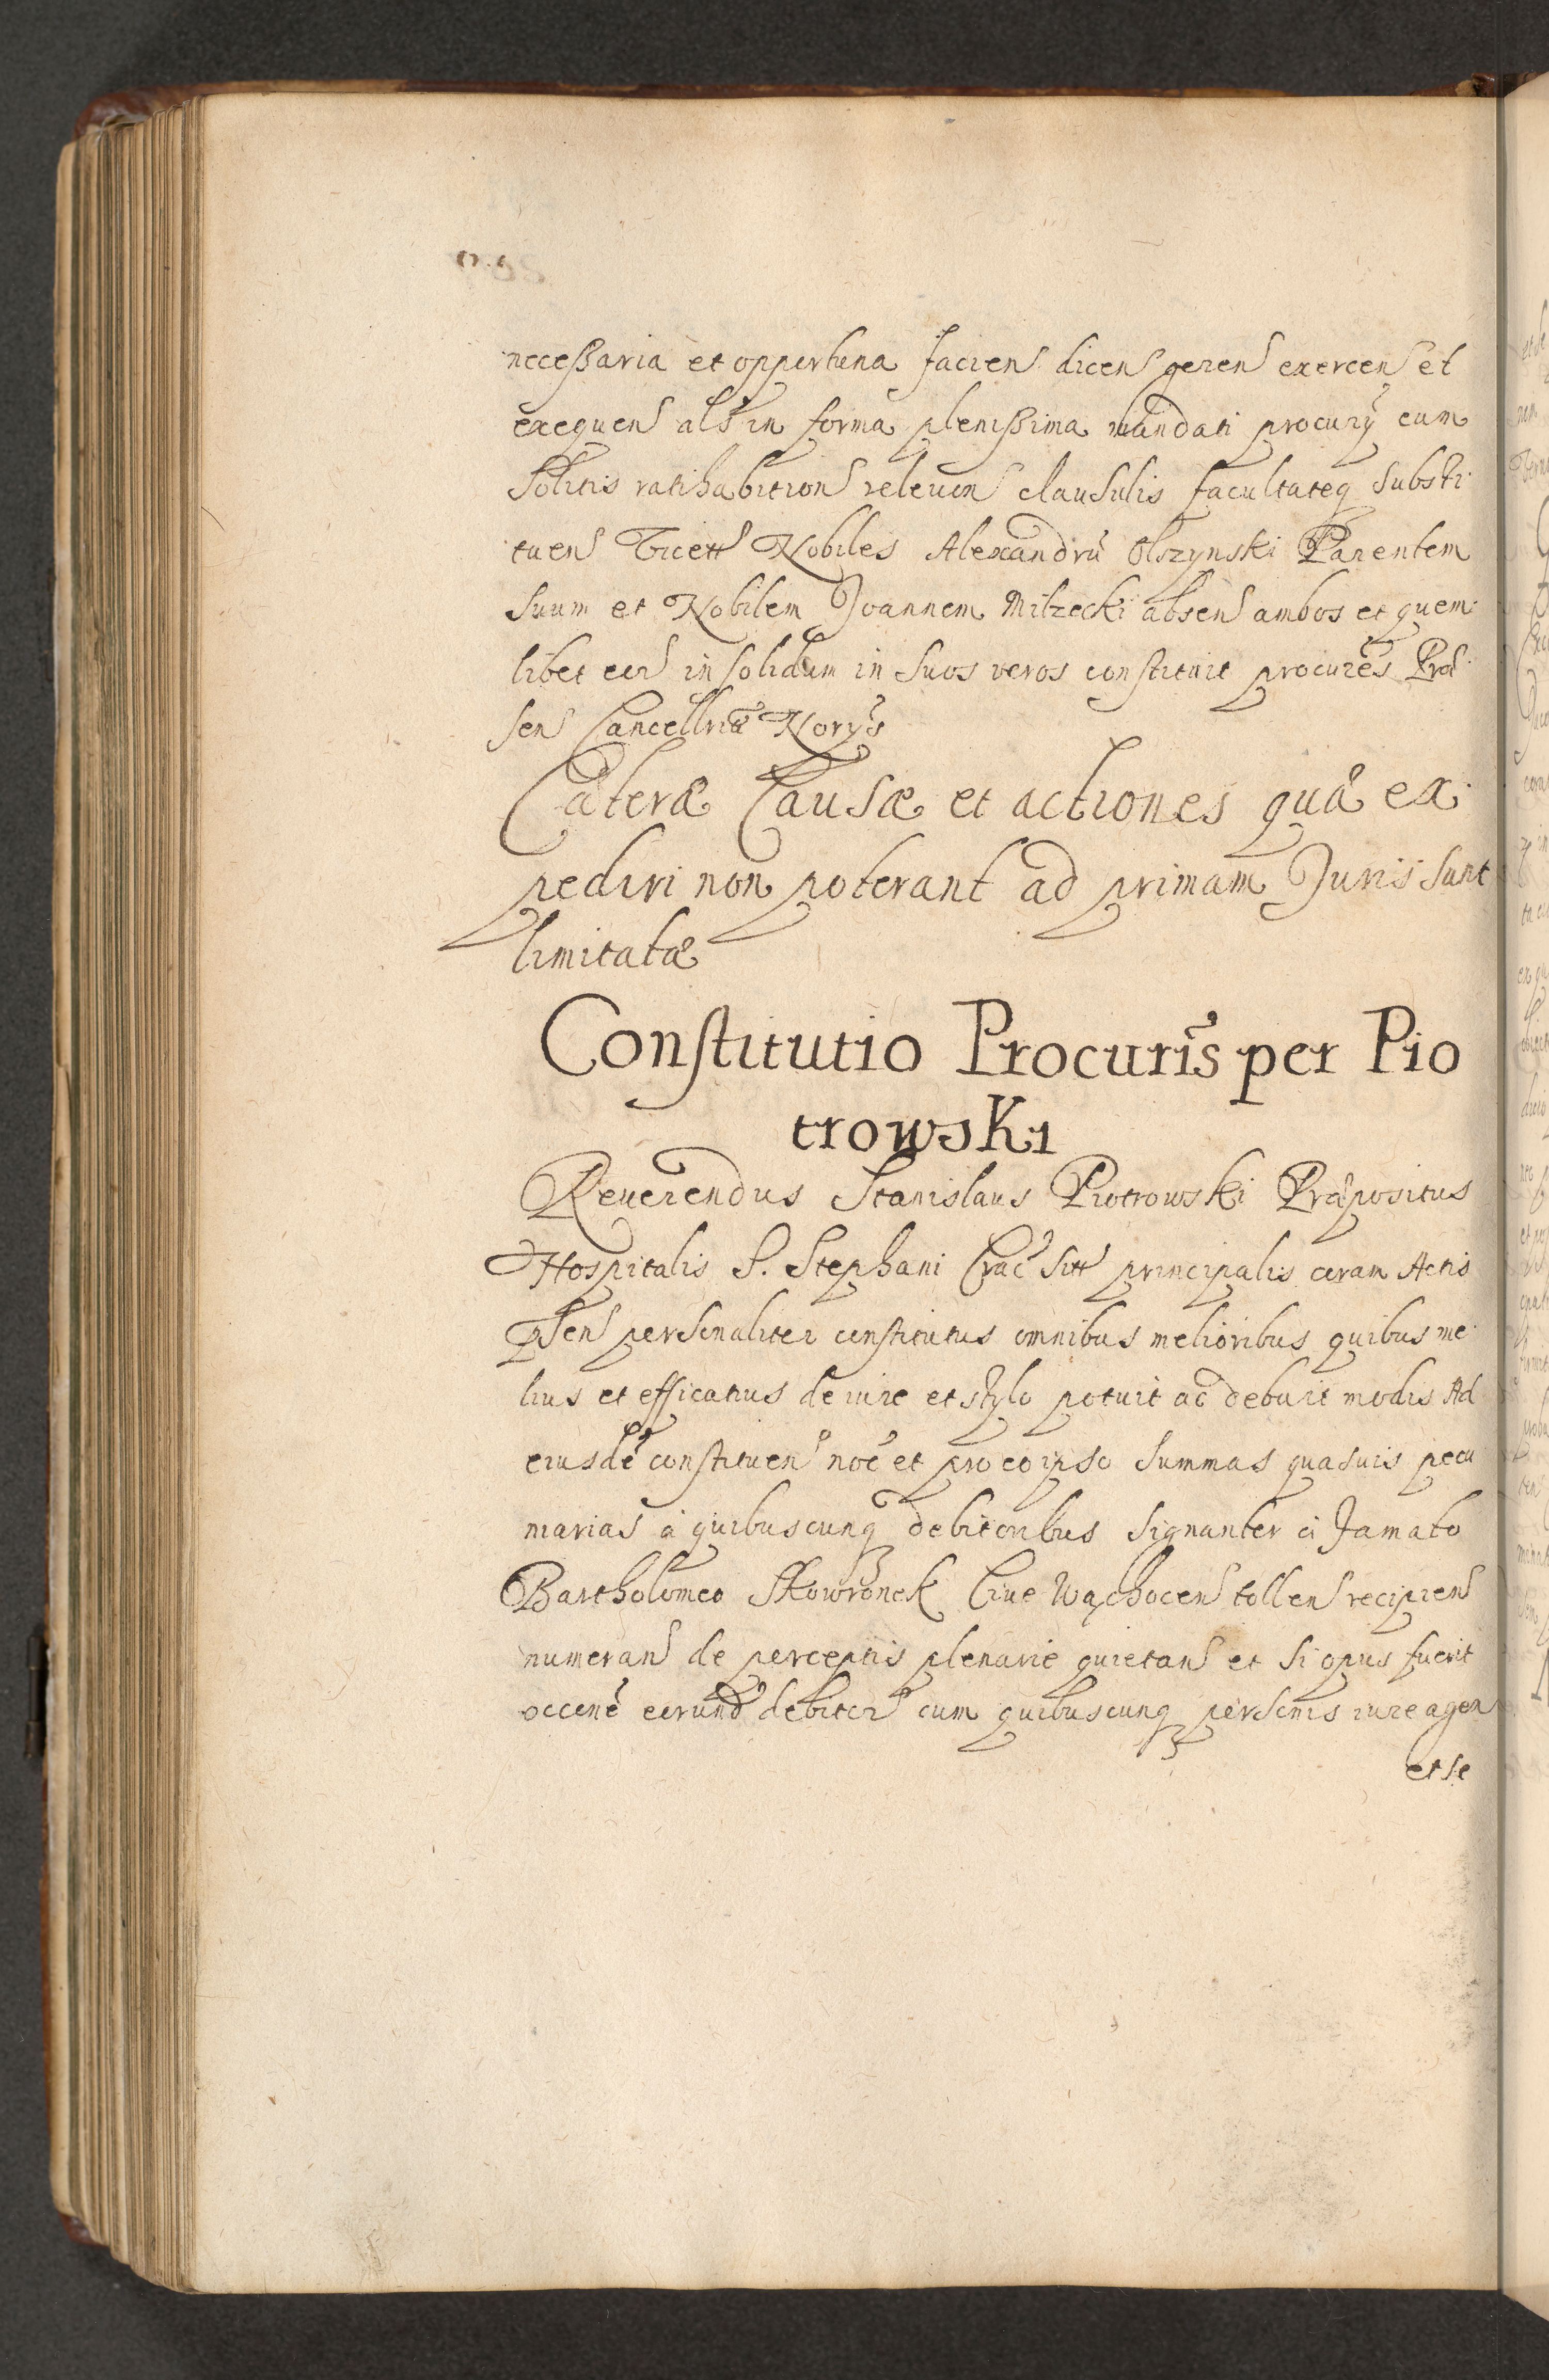 necessaria et opportuna faciens dicens gerens exercens et
exequens als in forma plenissima mandati procurij cum
Solitis ratihabitions releuon clausulis facultateq substi
tuens Nobiles Alexandrū Olszynski Parentem
Suum et Nobilem Joannem Milzecki absens ambos et quem
libet eor in solidum in Suos veros constituit procurēs Præ
sens Cancellriæ Norÿs
Cæteræ Causæ et actiones quæ ex
pediri non poterant ad primam Juris sunt
limitatæ
Constitutio Procuris per Pio
trowski
Reuerendus Stanislaus Piotrowski Præpositus
Hospitalis S. Stephani Crac principalis coram Actis
psens personaliter constitutus omnibus melioribus quibus me
lius et efficatius de iure et stylo potuit ac debuit modis Ad
eiusdē constituens noē et pro eo ipso Summas quasuis pecu
niarias à quibuscunq debitoribus Signanter à famato
Bartholomeo Skowronek Ciue Wąchocens tollens recipiens
numerans de perceptis plenarie quietans et Si opus fuerit
occōne eorund debitor cum quibuscunq personis iure agen
et se